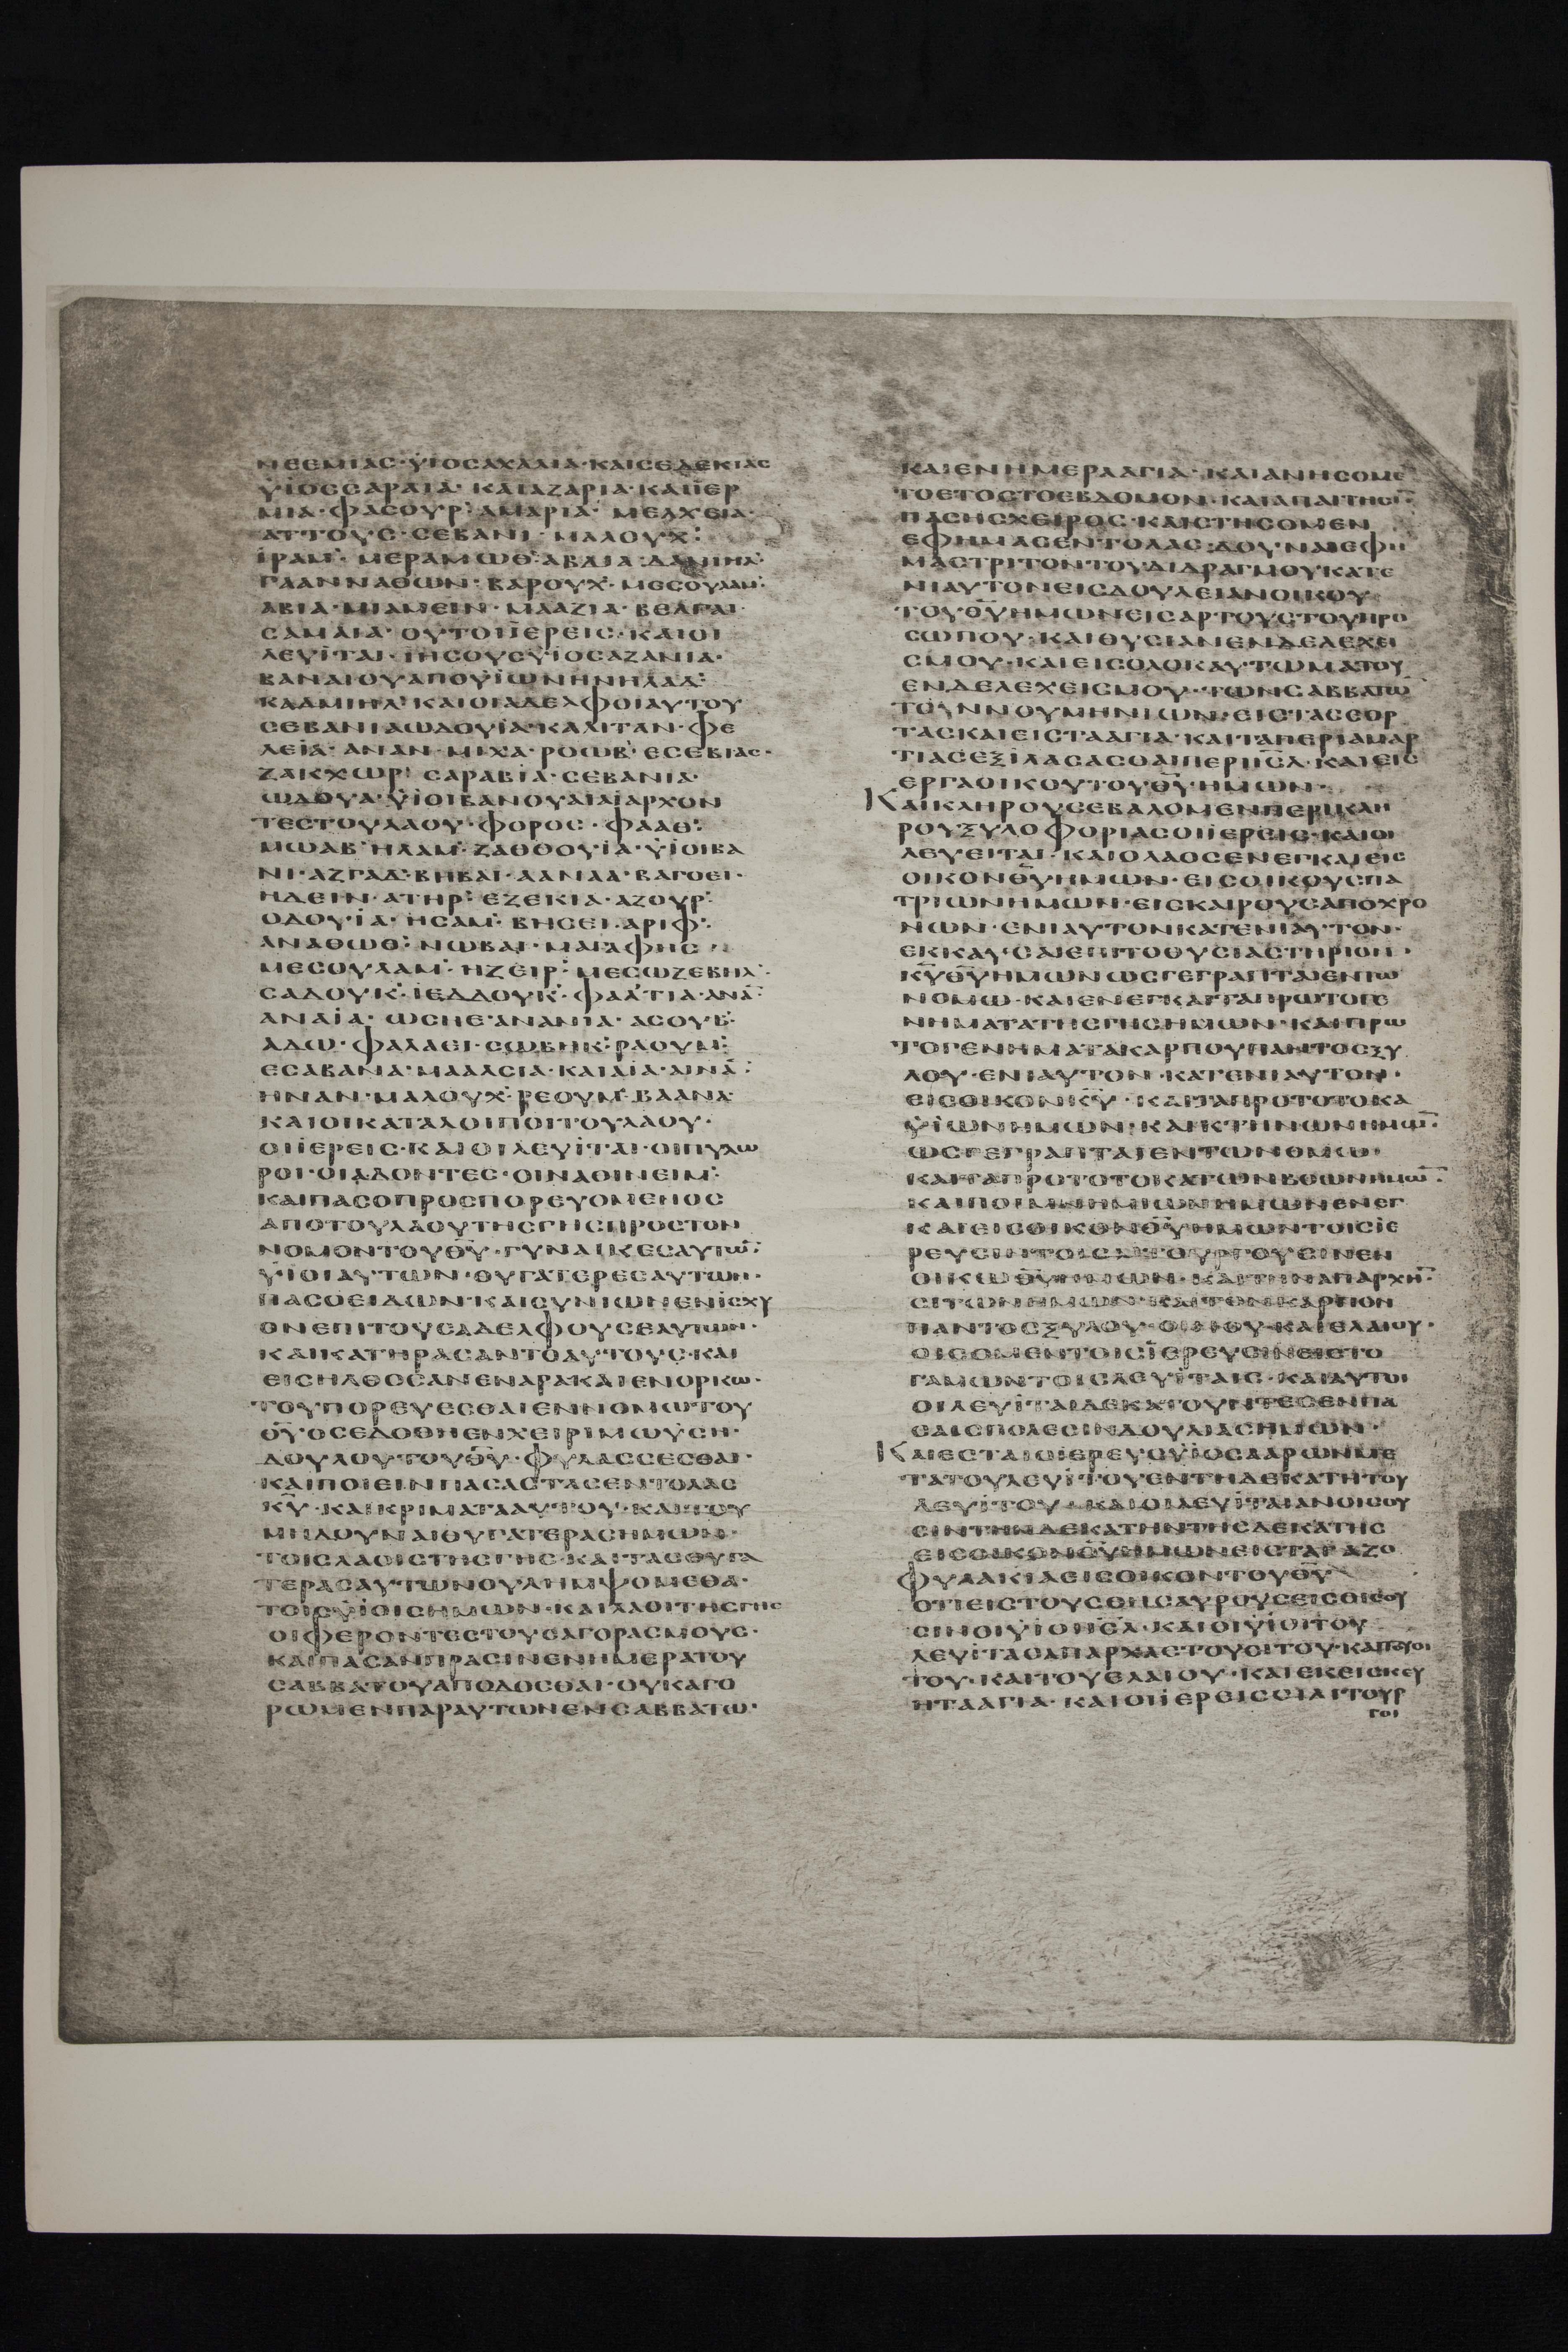 ΝΕΕΜΙΑС·ΥΪΟСΑΧΑΛΙΑ·ΚΑΙСΕΔΕΚΙΑС
ΥΪΟССΑΡΑΙΑ· ΚΑΙΑΖΑΡΙΑ·ΚΑΙΪΕΡ
ΜΙΑ·ΦΑСΟΥΡ: ΑΜΑΡΙΑ· ΜΕΛΧΕΙΑ·
ΑΤΤΟΥС·СΕΒΑΝΙ·ΜΑΛΟΥΧ:
ΪΡΑΜ: ΜΕΡΑΜΩΘ: ΑΒΔΙΑ·ΔΑΝΙΗΛ:
ΓΑΑΝΝΑΘΩΝ·ΒΑΡΟΥΧ·ΜΕСΟΥΛΑΜ:
ΑΒΙΑ·ΜΙΑΜΕΙΝ·ΜΑΑΖΙΑ·ΒΕΛΓΑΙ·
СΑΜΑΙΑ·ΟΥΤΟΙΪΕΡΕΙС·ΚΑΙΟΙ
ΛΕΥΪΤΑΙ·ΙΗСΟΥСΥΪΟСΑΖΑΝΙΑ·
ΒΑΝΑΙΟΥΑΠΟΥΪΩΝΗΝΗΔΑΔ:
ΚΑΔΜΙΗΛ·ΚΑΙΟΙΑΔΕΛΦΟΙΑΥΤΟΥ
СΕΒΑΝΙΑΩΔΟΥΪΑ·ΚΑΛΙΤΑΝ·ΦΕ
ΛΕΪΑ·ΑΝΑΝ·ΜΙΧΑ·ΡΟΩΒ·ΕСΕΒΙΑС·
ΖΑΚΧΩΡ: СΑΡΑΒΙΑ·СΕΒΑΝΙΑ·
ΩΔΟΥΑ·ΥΪΟΙΒΑΝΟΥΑΙΑΪΑΡΧΟΝ
ΤΕСΤΟΥΛΑΟΥ·ΦΟΡΟС·ΦΑΑΘ:
ΜΩΑΒ·ΗΛΑΜ·ΖΑΘΘΟΥΪΑ·ΥΪΟΙΒΑ
ΝΙ·ΑΖΓΑΔ:ΒΗΒΑΙ·ΑΑΝΑΑ·ΒΑΓΟΕΙ·
ΗΔΕΙΝ·ΑΤΗΡ: ΕΖΕΚΙΑ·ΑΖΟΥΡ:
ΟΔΟΥΪΑ·ΗСΑΜ: ΒΗСΕΙ·ΑΡΙΦ:
ΑΝΑΘΩΘ: ΝΩΒΑΙ·ΜΑΙΑΦΗС
ΜΕСΟΥΛΑΜ: ΗΖΕΙΡ: ΜΕСΩΖΕΒΗΛ:
СΑΔΟΥΚ: ΪΕΔΔΟΥΚ·ΦΑΛΤΙΑ·ΑΝΑ̅:
ΑΝΑΪΑ·ΩСΗΕ·ΑΝΑΝΙΑ·ΑСΟΥΒ·
ΑΔΩ·ΦΑΛΑΕΙ·СΩΒΗΚ:ΡΑΟΥΜ:
ΕСΑΒΑΝΑ·ΜΑΑΛСΙΑ·ΚΑΙΑΪΑ·ΑΙΝΑ̅:
ΗΝΑΝ·ΜΑΛΟΥΧ·ΡΕΟΥΜ·ΒΑΑΝΑ·
ΚΑΙΟΙΚΑΤΑΛΟΙΠΟΙΤΟΥΛΑΟΥ·
ΟΙΪΕΡΕΙС·ΚΑΙΟΙΛΕΥΪΤΑΙ·ΟΙΠΥΛΩ
ΡΟΙ·ΟΙΑΔΟΝΤΕС·ΟΙΝΑΘΙΝΕΙΜ:
ΚΑΙΠΑСΟΠΡΟСΠΟΡΕΥΟΜΕΝΟС
ΑΠΟΤΟΥΛΑΟΥΤΗСΓΗСΠΡΟСΤΟΝ
ΝΟΜΟΝΤΟΥΘ̅Υ̅·ΓΥΝΑΙΚΕСΑΥΤΩ̅:
ΥΪΟΙΑΥΤΩΝ·ΘΥΓΑΤΕΡΕСΑΥΤΩΝ·
ΠΑСΟΕΙΔΩΝ·ΚΑΙСΥΝΙΩΝΕΝΙСΧΥ
ΟΝΕΠΙΤΟΥСΑΔΕΛΦΟΥСΕΑΥΤΩΝ·
ΚΑΙΚΑΤΗΡΑСΑΝΤΟΑΥΤΟΥС·ΚΑΙ
ΕΙСΗΛΘΟСΑΝΕΝΑΡΑΚΑΙΕΝΟΡΚΩ·
ΤΟΥΠΟΡΕΥΕСΘΑΙΕΝΝΟΜΩΤΟΥ
Θ̅Υ̅·ΟСΕΔΟΘΗΕΝΧΕΙΡΙΜΩΥСΗ·
ΔΟΥΛΟΥΤΟΥΘ̅Υ̅·ΦΥΛΑССΕСΘΑΙ·
ΚΑΙΠΟΙΕΙΝΠΑСΑСΤΑСΕΝΤΟΛΑС
Κ̅Υ̅·ΚΑΙΚΡΙΜΑΤΑΑΥΤΟΥ·ΚΑΙΤΟΥ
ΜΗΔΟΥΝΑΙΘΥΓΑΤΕΡΑСΗΜΩΝ·
ΤΟΙСΛΑΟΙСΤΗСΓΗС·ΚΑΙΤΑСΘΥΓΑ
ΤΕΡΑСΑΥΤΩΝΟΥΛΗΜΨΟΜΕΘΑ·
ΤΟΙСΥΪΟΙСΗΜΩΝ·ΚΑΙΛΑΟΙΤΗСΓΗС
ΟΙΦΕΡΟΝΤΕСΤΟΥСΑΓΟΡΑСΜΟΥС·
ΚΑΙΠΑСΑΝΠΡΑСΙΝΕΝΗΜΕΡΑΤΟΥ
СΑΒΒΑΤΟΥΑΠΟΔΟСΘΑΙ·ΟΥΚΑΓΟ
ΡΩΜΕΝΠΑΡΑΥΤΩΝΕΝСΑΒΒΑΤΩ·
ΚΑΙΕΝΗΜΕΡΑΑΓΙΑ·ΚΑΙΑΝΗСΟΜΕ
ΤΟΕΤΟСΤΟΕΒΔΟΜΟΝ·ΚΑΙΑΠΑΙΤΗСΙ̅:
ΠΑСΗСΧΕΙΡΟС·ΚΑΙСΤΗСΟΜΕΝ
ΕΦΗΜΑСΕΝΤΟΛΑС·ΔΟΥΝΑΙΕΦΗ
ΜΑСΤΡΙΤΟΝΤΟΥΔΙΔΡΑΓΜΟΥΚΑΤΕ
ΝΙΑΥΤΟΝΕΙСΔΟΥΛΕΙΑΝΟΙΚΟΥ
ΤΟΥΘ̅Υ̅ΗΜΩΝΕΙСΑΡΤΟΥСΤΟΥΠΡΟ
СΩΠΟΥ·ΚΑΙΘΥСΙΑΝΕΝΔΕΛΕΧΕΙ
СΜΟΥ·ΚΑΙΕΙСΟΛΟΚΑΥΤΩΜΑΤΟΥ
ΕΝΔΕΛΕΧΕΙСΜΟΥ·ΤΩΝСΑΒΒΑΤΩ̅
ΤΟΥΝΝΟΥΜΗΝΙΩΝ·ΕΙСΤΑСΕΟΡ
ΤΑСΚΑΙΕΙСΤΑΑΓΙΑ·ΚΑΙΤΑΠΕΡΙΑΜΑΡ
ΤΙΑСΕΞΪΛΑСΑСΘΑΙΠΕΡΙΙ̅Η̅Λ̅·ΚΑΙΕΙС
ΕΡΓΑΟΙΚΟΥΤΟΥΘ̅Υ̅ΗΜΩΝ·
ΚΑΙΚΛΗΡΟΥСΕΒΑΛΟΜΕΝΠΕΡΙΚΛΗ
ΡΟΥΞΥΛΟΦΟΡΙΑСΟΙΪΕΡΕΙС·ΚΑΙΟΙ
ΛΕΥΕΙΤΑΙ·ΚΑΙΟΛΑΟСΕΝΕΓΚΑΙΕΙС
ΟΙΚΟΝΘ̅Υ̅ΗΜΩΝ·ΕΙСΟΙΚΟΥСΠΑ
ΤΡΙΩΝΗΜΩΝ·ΕΙСΚΑΙΡΟΥСΑΠΟΧΡΟ
ΝΩΝ·ΕΝΙΑΥΤΟΝΚΑΤΕΝΙΑΥΤΟΝ·
ΕΚΚΑΥСΑΙΕΠΙΤΟΘΥСΙΑСΤΗΡΙΟΝ·
Κ̅Υ̅Θ̅Υ̅ΗΜΩΝΩСΓΕΓΡΑΠΤΑΙΕΝΤΩ
ΝΟΜΩ·ΚΑΙΕΝΕΓΚΑΙΤΑΠΡΩΤΟΓΕ
ΝΗΜΑΤΑΤΗСΓΗСΗΜΩΝ·ΚΑΙΠΡΩ
ΤΟΓΕΝΗΜΑΤΑΚΑΡΠΟΥΠΑΝΤΟСΞΥ
ΛΟΥ·ΕΝΙΑΥΤΟΝ·ΚΑΤΕΝΙΑΥΤΟΝ·
ΕΙСΟΙΚΟΝΚ̅Υ̅·ΚΑΙΤΑΠΡΟΤΟΤΟΚΑ
ΥΪΩΝΗΜΩΝ·ΚΑΙΚΤΗΝΩΝΗΜΩ̅:
ΩСΓΕΓΡΑΠΤΑΙΕΝΤΩΝΟΜΩ·
ΚΑΙΤΑΠΡΟΤΟΤΟΚΑΤΩΝΒΟΩΝΗΜΩ̅:
ΚΑΙΠΟΙΜΝΗΜΙΩΝΗΜΩΝΕΝΕΓ
ΚΑΙΕΙСΟΙΚΟΝΘ̅Υ̅ΗΜΩΝΤΟΙСΪΕ
ΡΕΥСΙΝΤΟΙСΛΙΤΟΥΡΓΟΥСΙΝΕΝ
ΟΙΚΩΘ̅Υ̅ΗΜΩΝ·ΚΑΙΤΗΝΑΠΑΡΧΗ̅:
СΙΤΩΝΗΜΩΝ·ΚΑΙΤΟΝΚΑΡΠΟΝ
ΠΑΝΤΟСΞΥΛΟΥ·ΟΙΝΟΥ·ΚΑΙΕΛΑΙΟΥ·
ΟΙСΟΜΕΝΤΟΙСΪΕΡΕΥСΙΝΕΙСΤΟ
ΓΑΜΩΝΤΟΙСΛΕΥΪΤΑΙС·ΚΑΙΑΥΤΟΙ
ΟΙΛΕΥΪΤΑΙΔΕΚΑΤΟΥΝΤΕСΕΝΠΑ
СΑΙСΠΟΛΕСΙΝΔΟΥΛΙΑСΗΜΩΝ·
ΚΑΙΕСΤΑΙΟΪΕΡΕΥΟΥΪΟСΑΑΡΩΝΜΕ
ΤΑΤΟΥΛΕΥΪΤΟΥΕΝΤΗΔΕΚΑΤΗΤΟΥ
ΛΕΥΪΤΟΥ·ΚΑΙΟΙΛΕΥΪΤΑΙΑΝΟΙСΟΥ
СΙΝΤΗΝΔΕΚΑΤΗΝΤΗСΔΕΚΑΤΗС
ΕΙСΟΙΚΟΝΘ̅Υ̅ΗΜΩΝΕΙСΤΑΓΑΖΟ
ΦΥΛΑΚΙΑΕΙСΟΙΚΟΝΤΟΥΘ̅Υ̅
ΟΤΙΕΙСΤΟΥСΘΗСΑΥΡΟΥСΕΙСΟΙСΟΥ
СΙΝΟΙΥΪΟΙΙ̅Η̅Λ̅·ΚΑΙΟΙΥΪΟΙΤΟΥ
ΛΕΥΪΤΑСΑΠΑΡΧΑСΤΟΥСΙΤΟΥ·ΚΑΙΤΟΥΟΙ
ΤΟΥ·ΚΑΙΤΟΥΕΛΑΙΟΥ·ΚΑΙΕΚΕΙСΚΕΥ
ΗΤΑΑΓΙΑ·ΚΑΙΟΙΪΕΡΕΙСΟΙΛΙΤΟΥΡ
ΓΟΙ